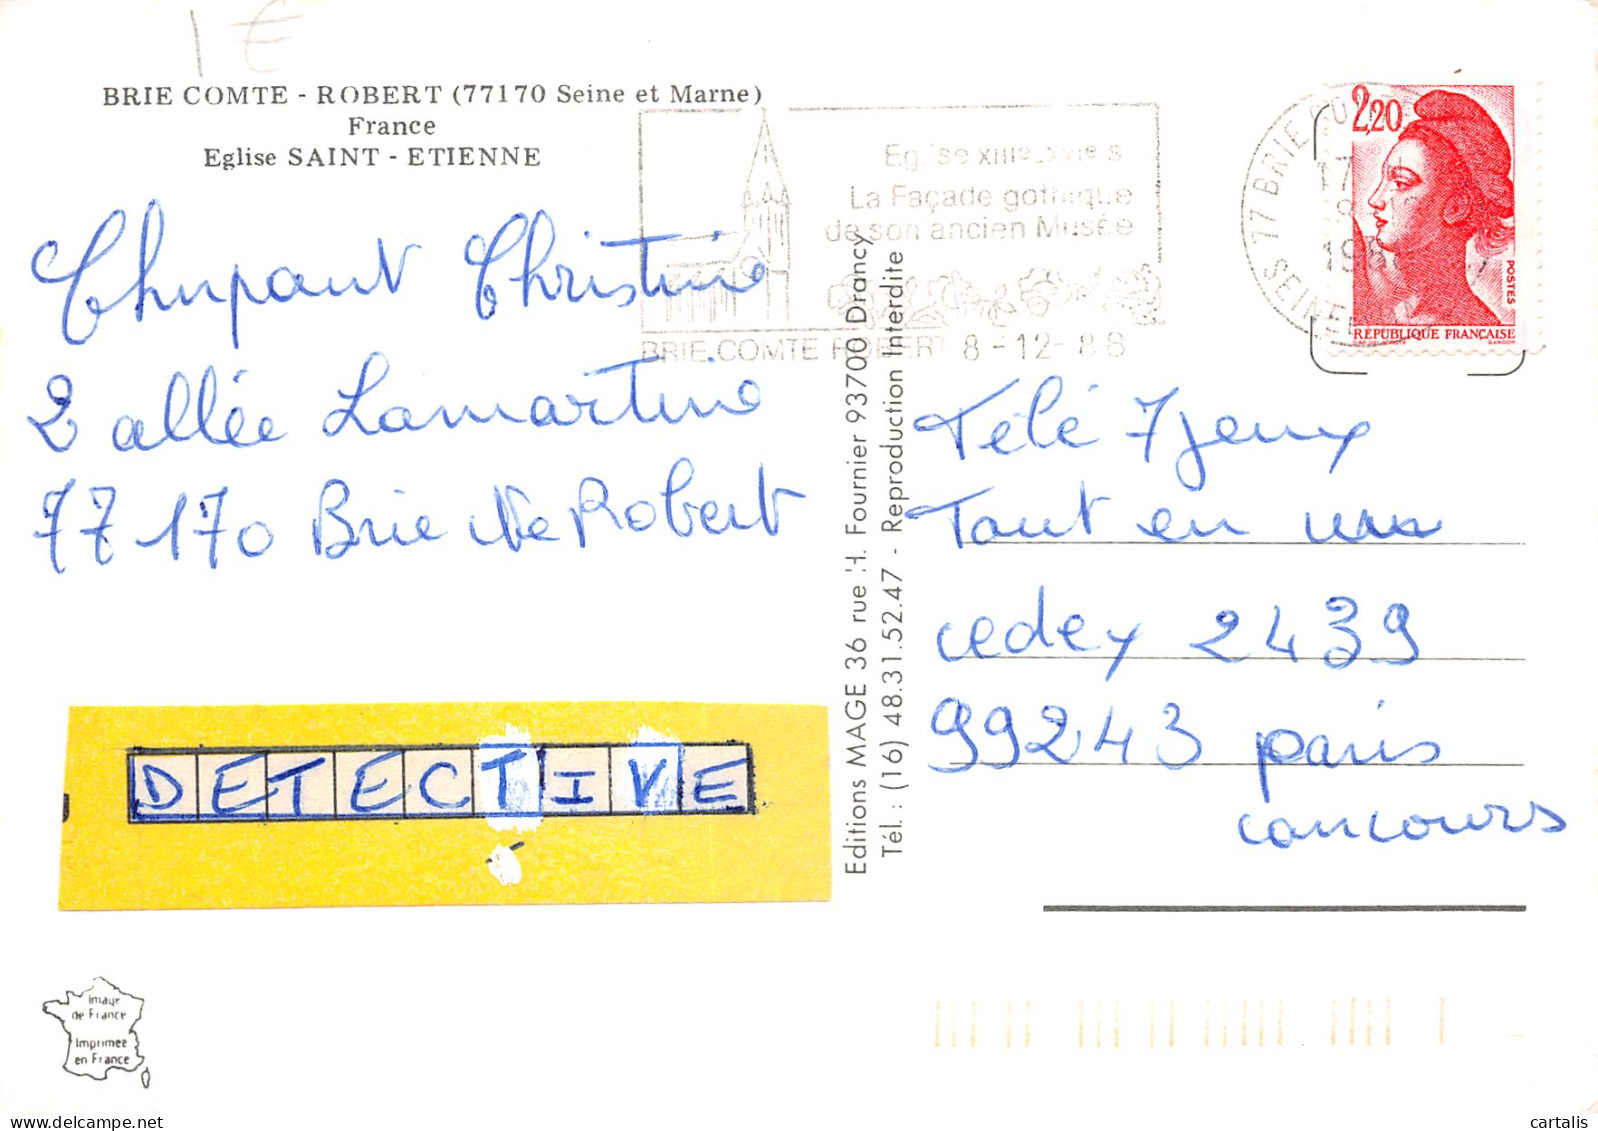 1 €
BRIE COMTE - ROBERT (77170 Seine et Marne)
France
Eglise SAINT - ETIENNE
Chupaut Christine
2 allée Lamartine
77170 Brie Robert
DETECTIVE
Image
de France
Imprimée
en France
Eglise XIIIe_XVIe S
La Façade gothique
de son ancien Musée
BRIE COMTE ROBERT 8-12-88
Editions MAGE 36 rue H. Fournier 93700 Drancy
Tél. : (16) 48.31.52.47 - Reproduction Interdite
77 BRIE
17
198
SEINE
2,20
POSTES
RÉPUBLIQUE FRANÇAISE
GANDON
Télé 7 Jeux
Tout en un
cedex 2439
99243 paris
concours
cartalis